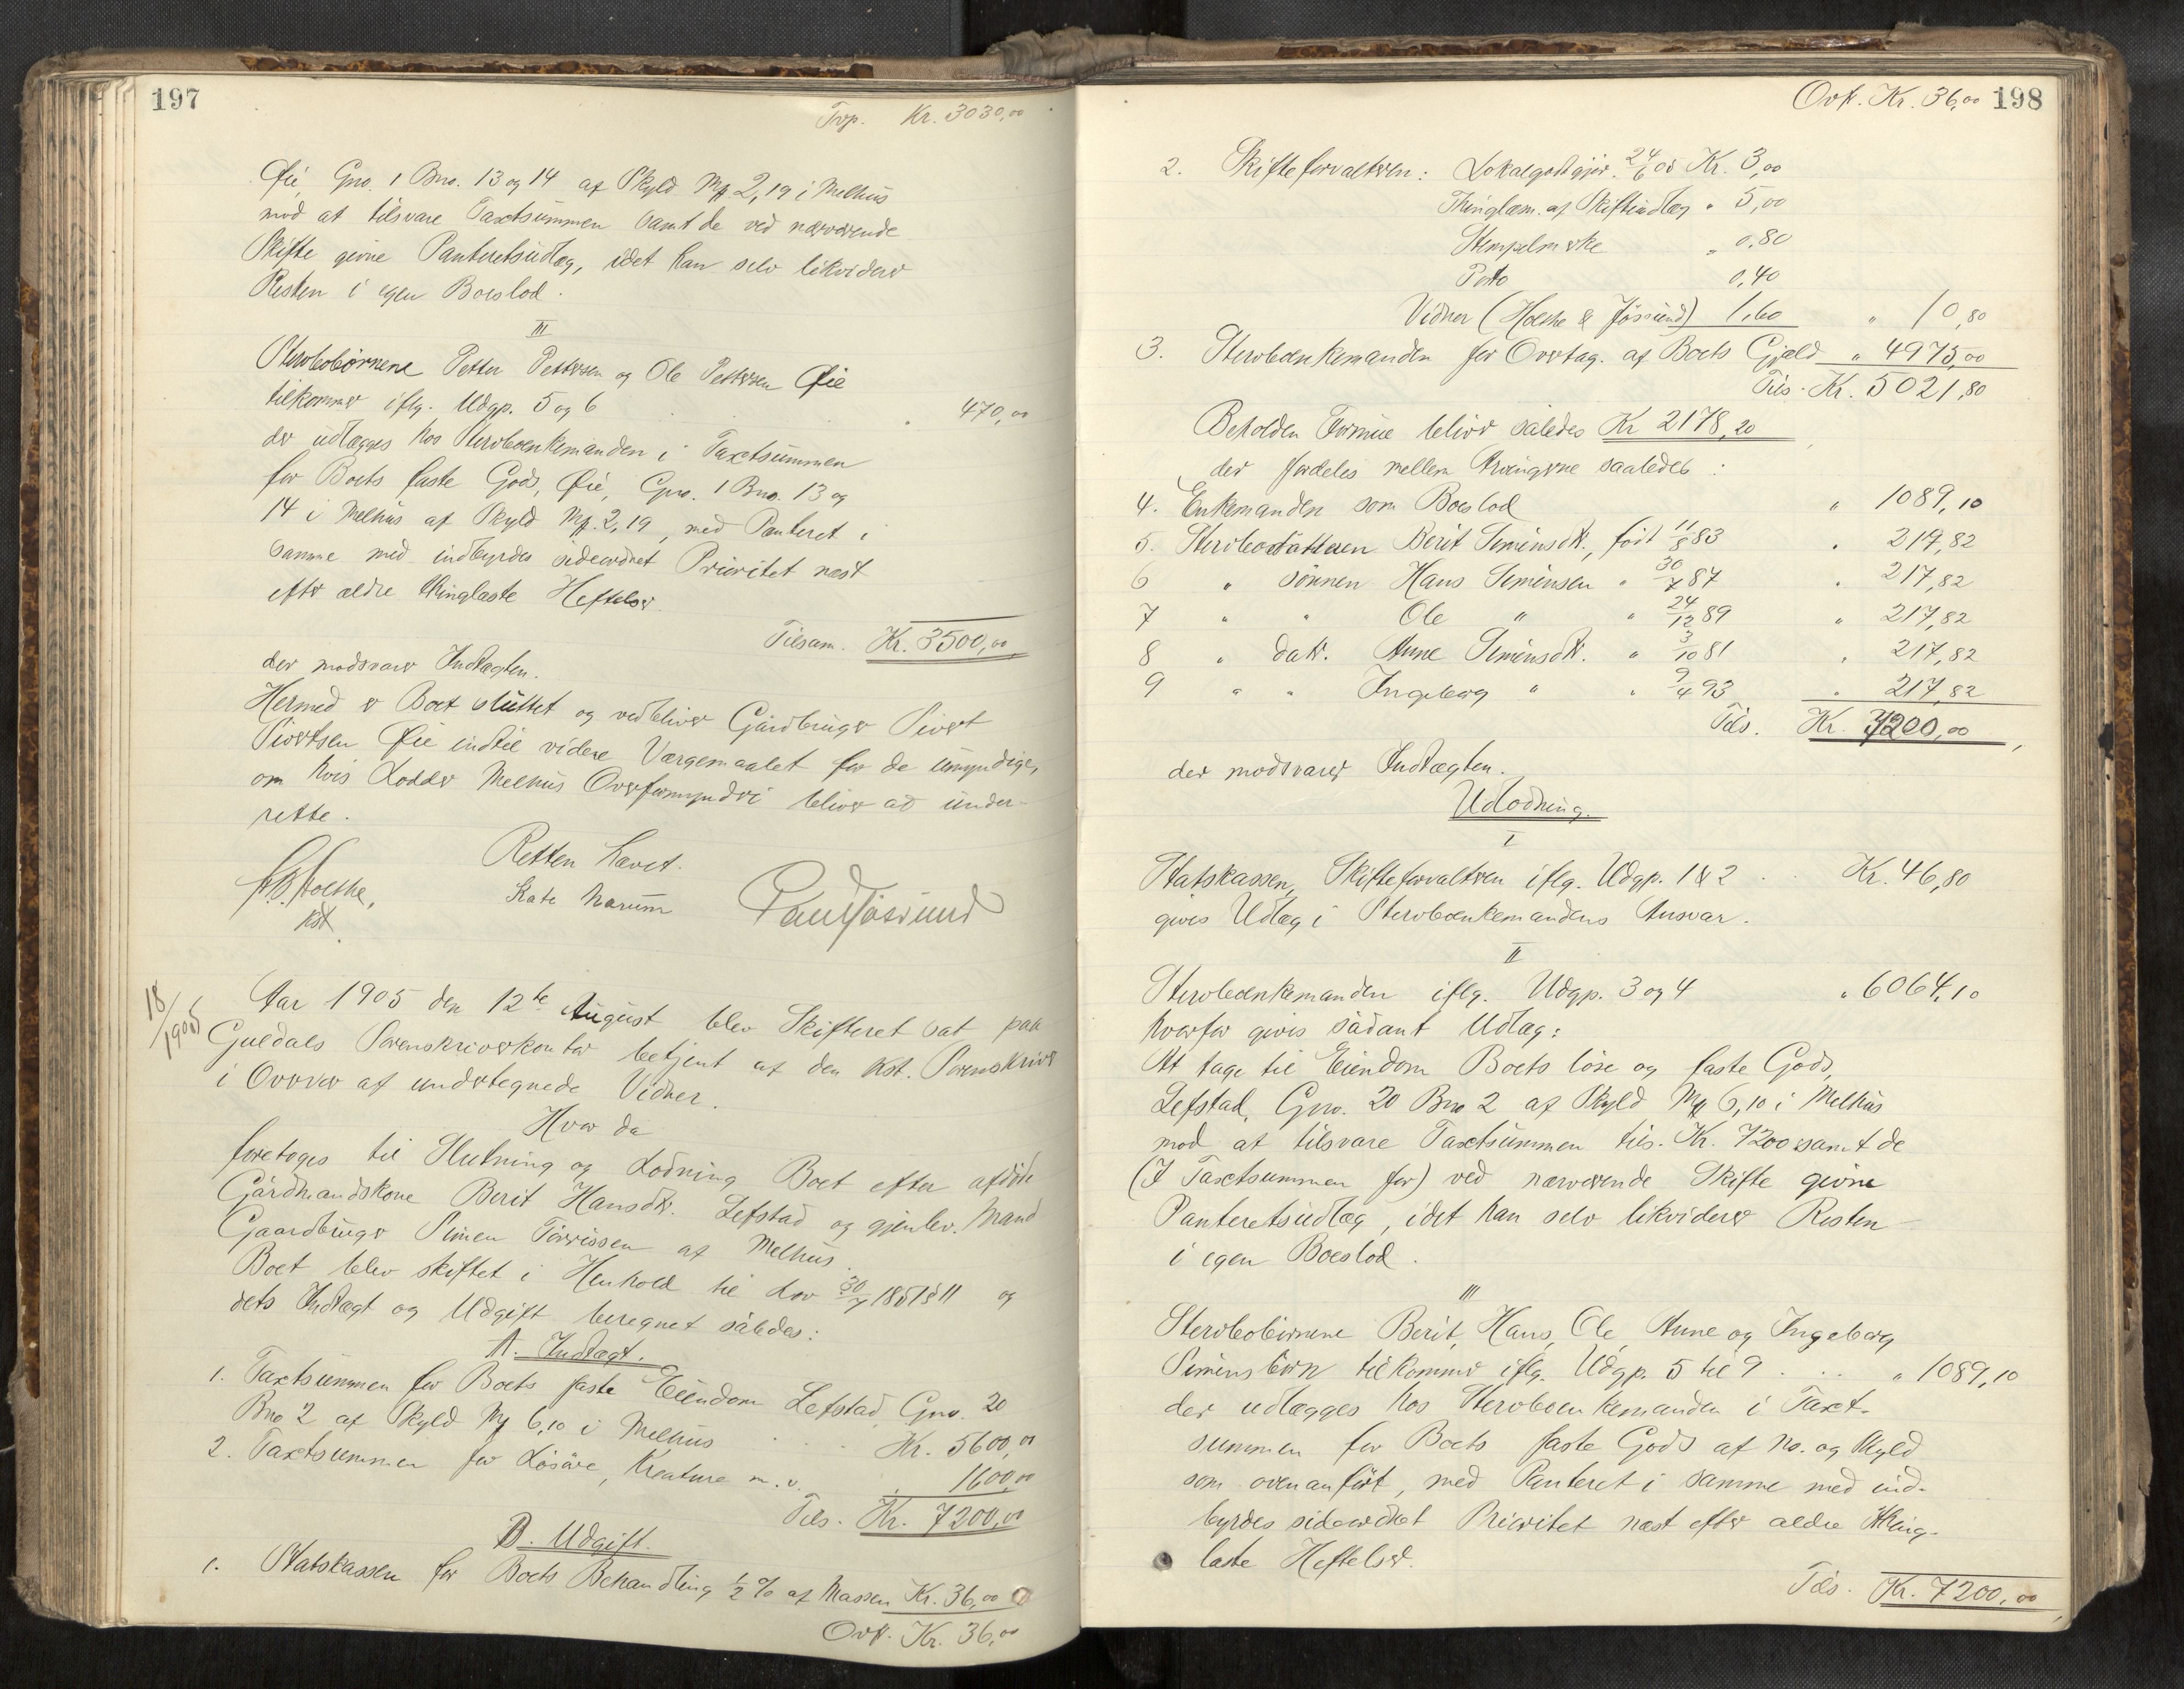 197
Trp. Kr. 3030,00
Øie, Gno. 1 Bno. 13 og 14 af Skyld Mk 2,19 i Melhus
mod at tilsvare Taxtsummen samt de ved nærværende
Skifte givne Panteretsudlæg, idet han selv likviderer
Resten i egen Boeslod.
III
Sterbobørnene Petter Pettersen og Ole Pettersen Øie
tilkommer iflg. Udgp. 5 og 6 „ 470,00
der udlægges hos Sterboenkemanden i Taxtsummen
for Boets faste Gods, Øie, Gno. 1 Bno. 13 og
14 i Melhus af Skyld Mk. 2,19, med Panteret i
samme med indbyrdes sideordnet Prioritet næst
efter ældre thinglæste Heftelser.
Tilsam. Kr. 3500,00
der modsvarer Indtægten.
Hermed er Boet sluttet og vedbliver Gårdbruger Sivert
Sivertsen Øie indtil videre Værgemaalet for de umyndige,
om hvis Lodder Melhus Overformynderi bliver at under-
rette.
Retten hævet.
Kate Narum
Paul Jøssund
kst.
18/1905
Aar 1905 den 12te August blev Skifteret sat paa
Guldals Sorenskriverkontor betjent af den kst. Sorenskriver
i Overvær af undertegnede Vidner.
Hvor da
foretoges til Slutning og Lodning Boet efter afdøde
Gårdmandskone Berit Hansdtr. Lefstad og gjenlev. Mand
Gaardbruger Simen Tørrissen af Melhus.
Boet blev skiftet i Henhold til Lov 30/7 1851 § 11 og
dets Indtægt og Udgift beregnet således:
A. Indtægt.
1. Taxtsummen for Boets faste Eiendom Lefstad, Gno. 20
Bno 2 af Skyld Mk 6,10 i Melhus Kr. 5600,00
2. Taxtsummen for Løsøre, Kreature m.v. „ 1600,00
Tils. Kr. 7200,00
B. Udgift.
1. Statskassen for Boets Behandling 1/2 % af Massen Kr. 36,00
Ovf. Kr. 36,00
Ovf. Kr. 36,00 198
2. Skifteforvalteren: Lokalgodtgjør. 24/6 05 Kr. 3,00
Thinglæsn. af Skifteudlæg „ 5,00
Stempelmærke „ 0,80
Porto 0,40
Vidner (Holthe & Jøssund) 1,60 „ 10,80
3. Sterboenkemanden for Overtag. af Boets Gjæld „ 4975,00
Tils. Kr. 5021,80
Beholden Formue bliver således Kr 2178,20
der fordeles mellem Arvingerne saaledes:
4. Enkemanden som Boeslod „ 1089,10
5. Sterbodatteren Berit Simensdtr., født 11/8 83 „ 217,82
6 „ sønnen Hans Simensen „ 30/7 87 „ 217,82
7 „ „ Ole „ „ 24/12 89 „ 217,82
8 „ datr. Anne Simensdtr. „ 3/10 81 „ 217,82
9 „ „ Ingeborg „ „ 9/4 93 „ 217,82
Tils. Kr. 7200,00
der modsvarer Indtægten.
Udlodning.
I
Statskassen, Skifteforvalteren iflg. Udgp. 1 & 2 Kr. 46,80
gives Udlæg i Sterboenkemandens Ansvar.
II
Sterboenkemanden iflg. Udgp. 3 og 4 „ 6064,10
hvorfor gives sådant Udlæg:
At tage til Eiendom Boets løse og faste Gods,
Lefstad, Gno. 20 Bno 2 af Skyld Mk 6,10 i Melhus
mod at tilsvare Taxtsummen tils. Kr. 7200 samt de
(I Taxtsummen for) ved nærværende Skifte givne
Panteretsudlæg, idet han selv likviderer Resten
i egen Boeslod.
III
Sterbobørnene Berit, Hans, Ole, Anne og Ingeborg
Simensbørn tilkommer iflg. Udgp. 5 til 9 „ 1089,10
der udlægges hos Sterboenkemanden i Taxt-
summen for Boets faste Gods af No. og Skyld
som ovenanført, med Panteret i samme med ind-
byrdes sideordnet Prioritet næst efter ældre thing-
læste Heftelser.
Tils. Kr. 7200,00